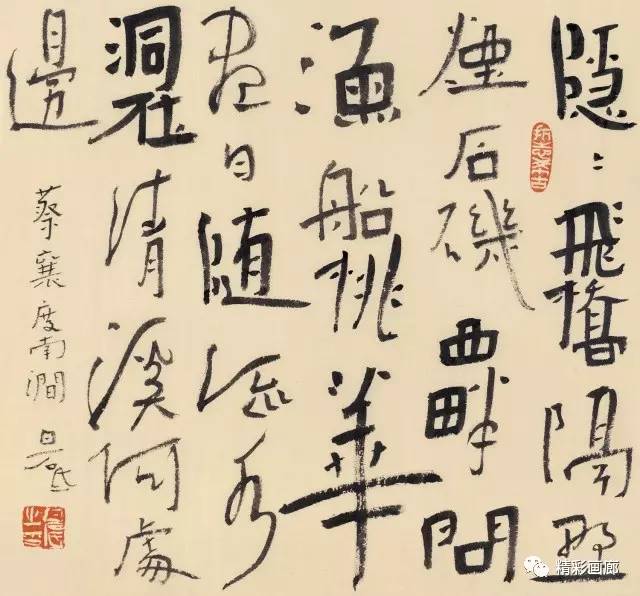 隐〻飛橋隔野
煙石磯西畔問
漁船桃華
盡日随流水
洞在清溪何處
邊
蔡襄度南澗
精彩画廊